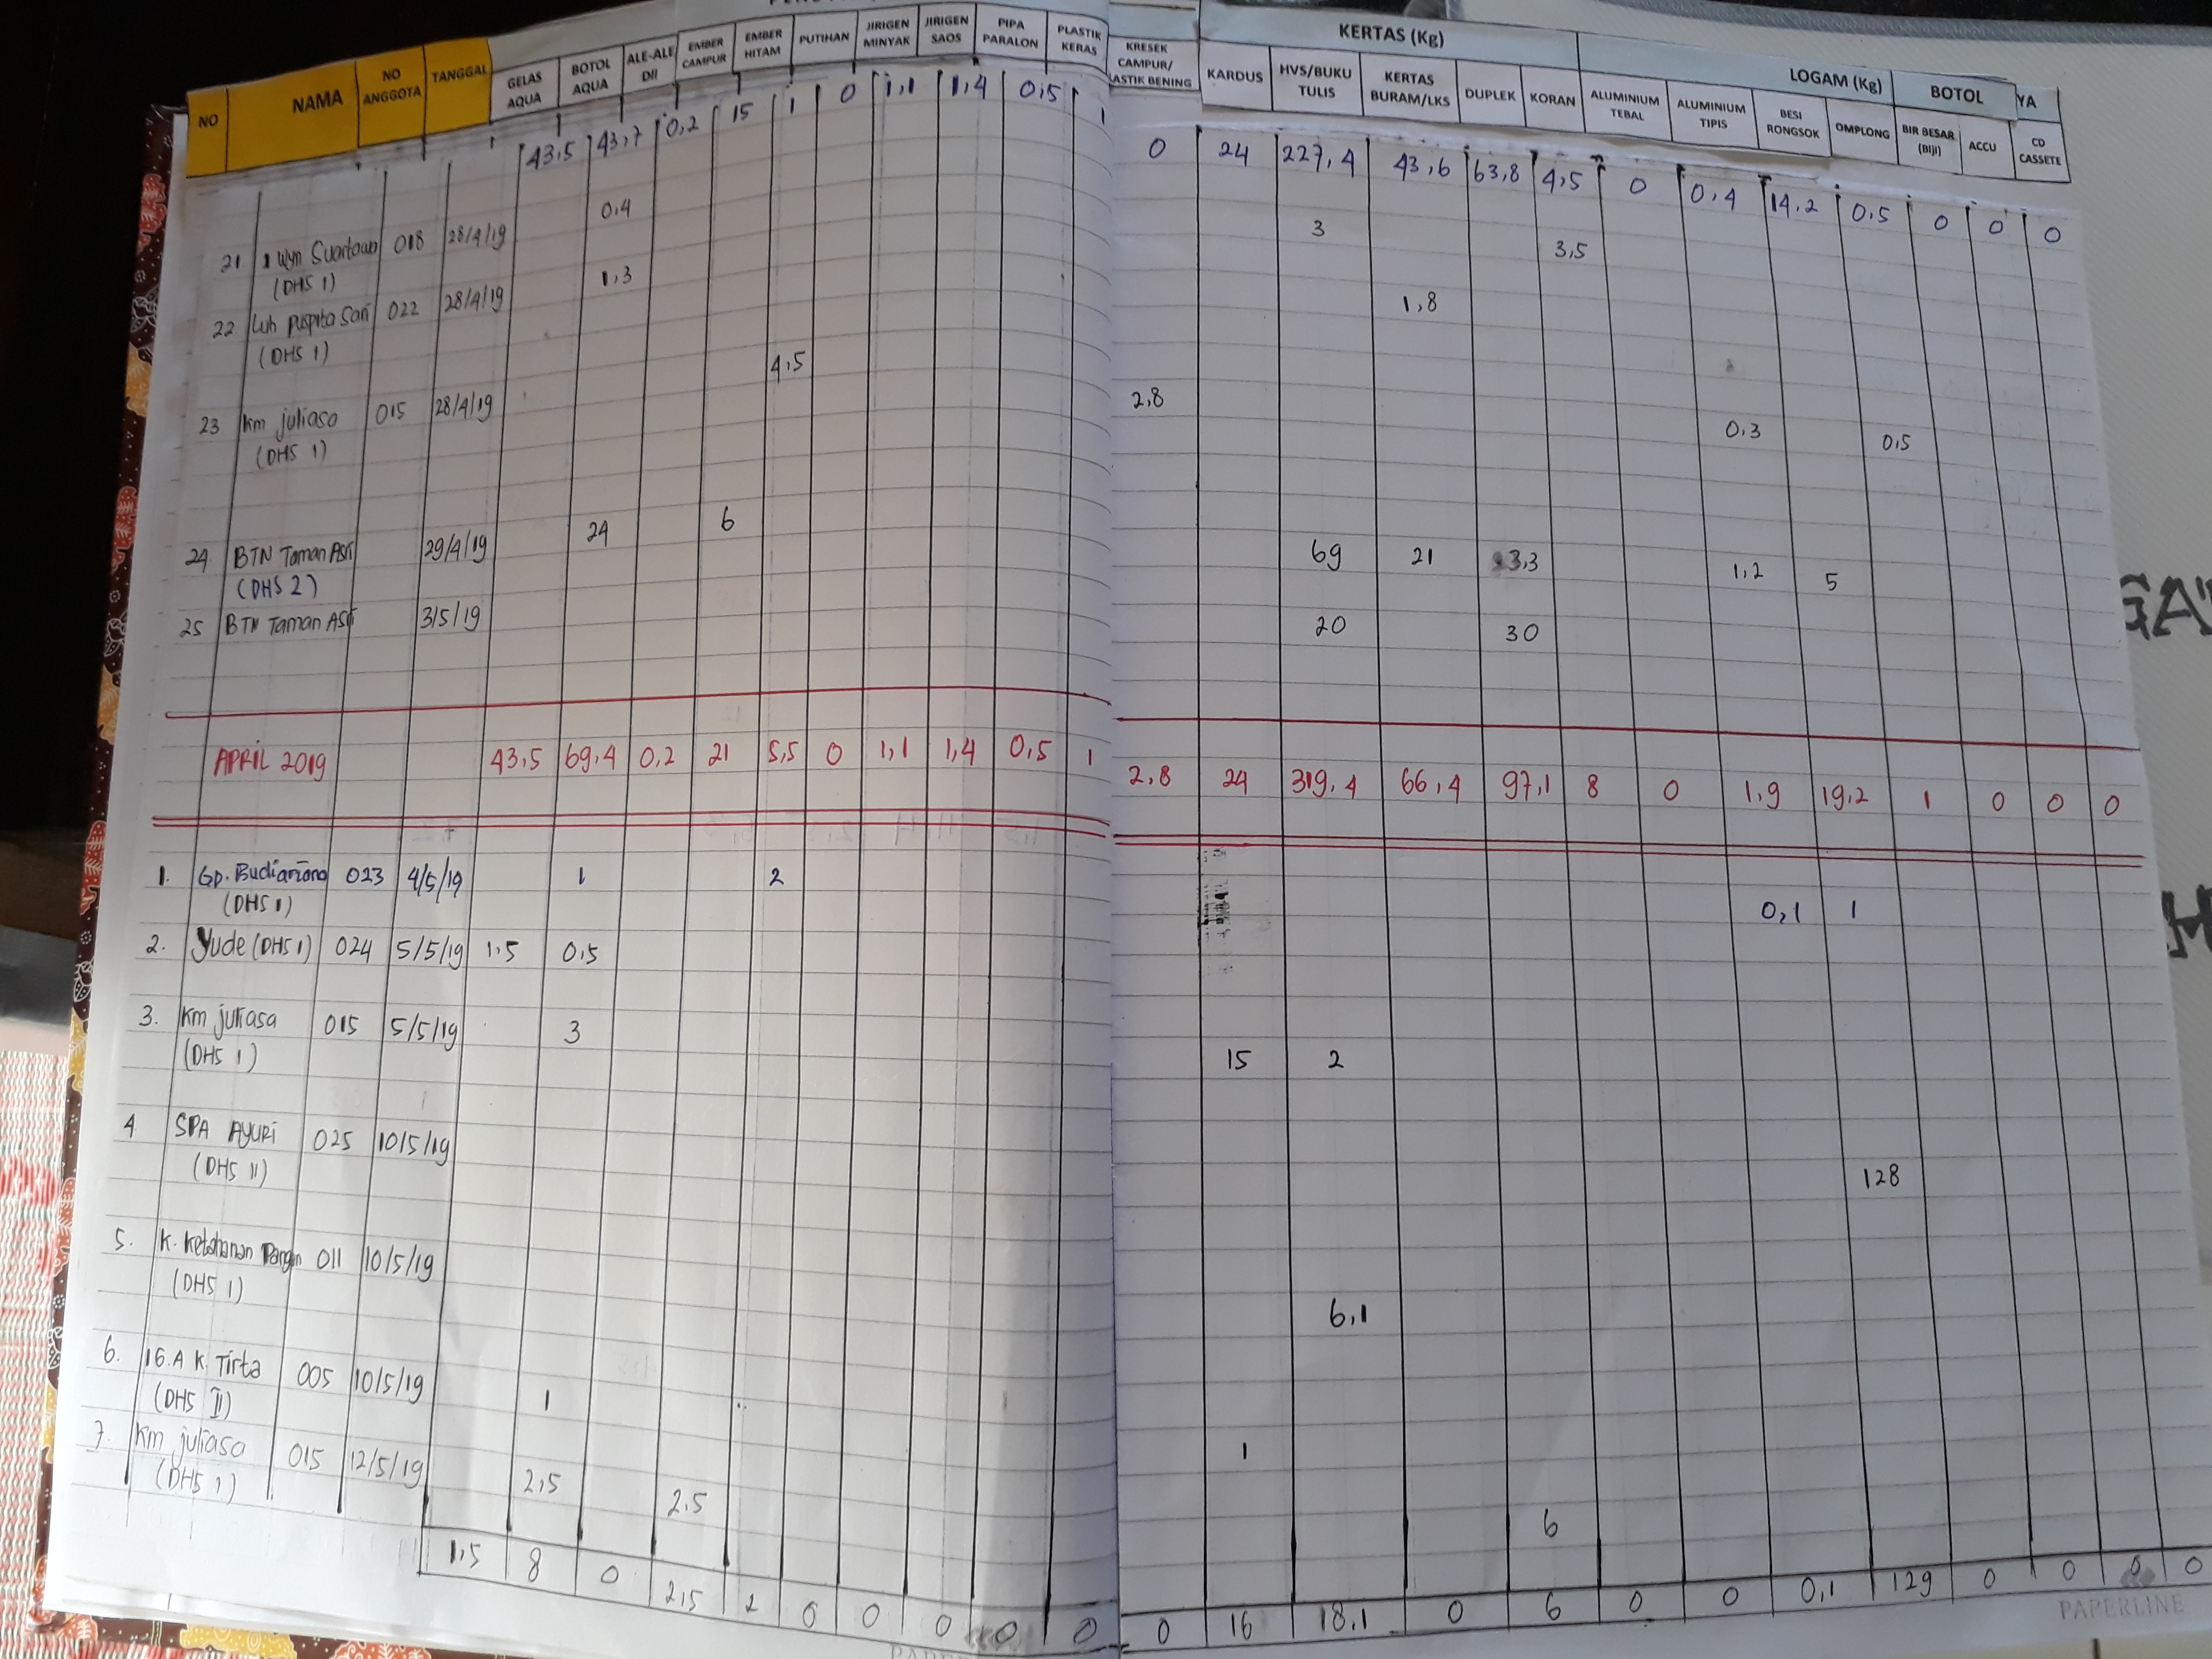 KERTAS (Kg) LOGAM (Kg) BOTOL YA
NO NAMA NO ANGGOTA TANGGAL GELAS AQUA BOTOL AQUA ALE-ALE Dll EMBER CAMPUR EMBER HITAM PUTIHAN JIRIGEN MINYAK JIRIGEN SAOS PIPA PARALON PLASTIK KERAS KRESEK CAMPUR/ ASTIK BENING KARDUS HVS/BUKU TULIS KERTAS BURAM/LKS DUPLEK KORAN ALUMINIUM TEBAL ALUMINIUM TIPIS BESI RONGSOK OMPLONG BIR BESAR (BIJI) ACCU CD CASSETE
43,5 43,7 0,2 15 1 0 1,1 1,4 0,5 1 0 24 227,4 43,6 63,8 4,5 0 0,4 14,2 0,5 0 0 0
21 I Wyn Suartawa 018 28/4/19 0,4 3 3,5
(DHS 1)
22 Luh Puspita Sari 022 28/4/19 1,3 1,8
(DHS 1)
23 Km juliasa 015 28/4/19 4,5 2,8 0,3 0,5
(DHS 1)
24 BTN Taman Asri 29/4/19 24 6 69 21 3,3 1,2 5
(DHS 2)
25 BTN Taman Asri 3/5/19 20 30
APRIL 2019 43,5 69,4 0,2 21 5,5 0 1,1 1,4 0,5 1 2,8 24 319,4 66,4 97,1 8 0 1,9 19,2 1 0 0 0
1. Gp. 023 4/5/19 1 2 0,1 1
(DHS 1)
2. Yude (DHS 1) 024 5/5/19 1.5 0,5
3. Km juliasa 015 5/5/19 3 15 2
(DHS 1)
4 SPA AYURI 025 10/5/19 128
(DHS II)
5. K. Ketahanan Pangan 011 10/5/19 6,1
(DHS 1)
6. K. Tirta 005 10/5/19 1 1
(DHS II)
7. Km juliasa 015 12/5/19 2,5 2.5 6
(DHS 1)
1,5 8 0 2,5 2 0 0 0 0 0 0 16 18,1 0 6 0 0 0,1 129 0 0 0 0
PAPERLINE